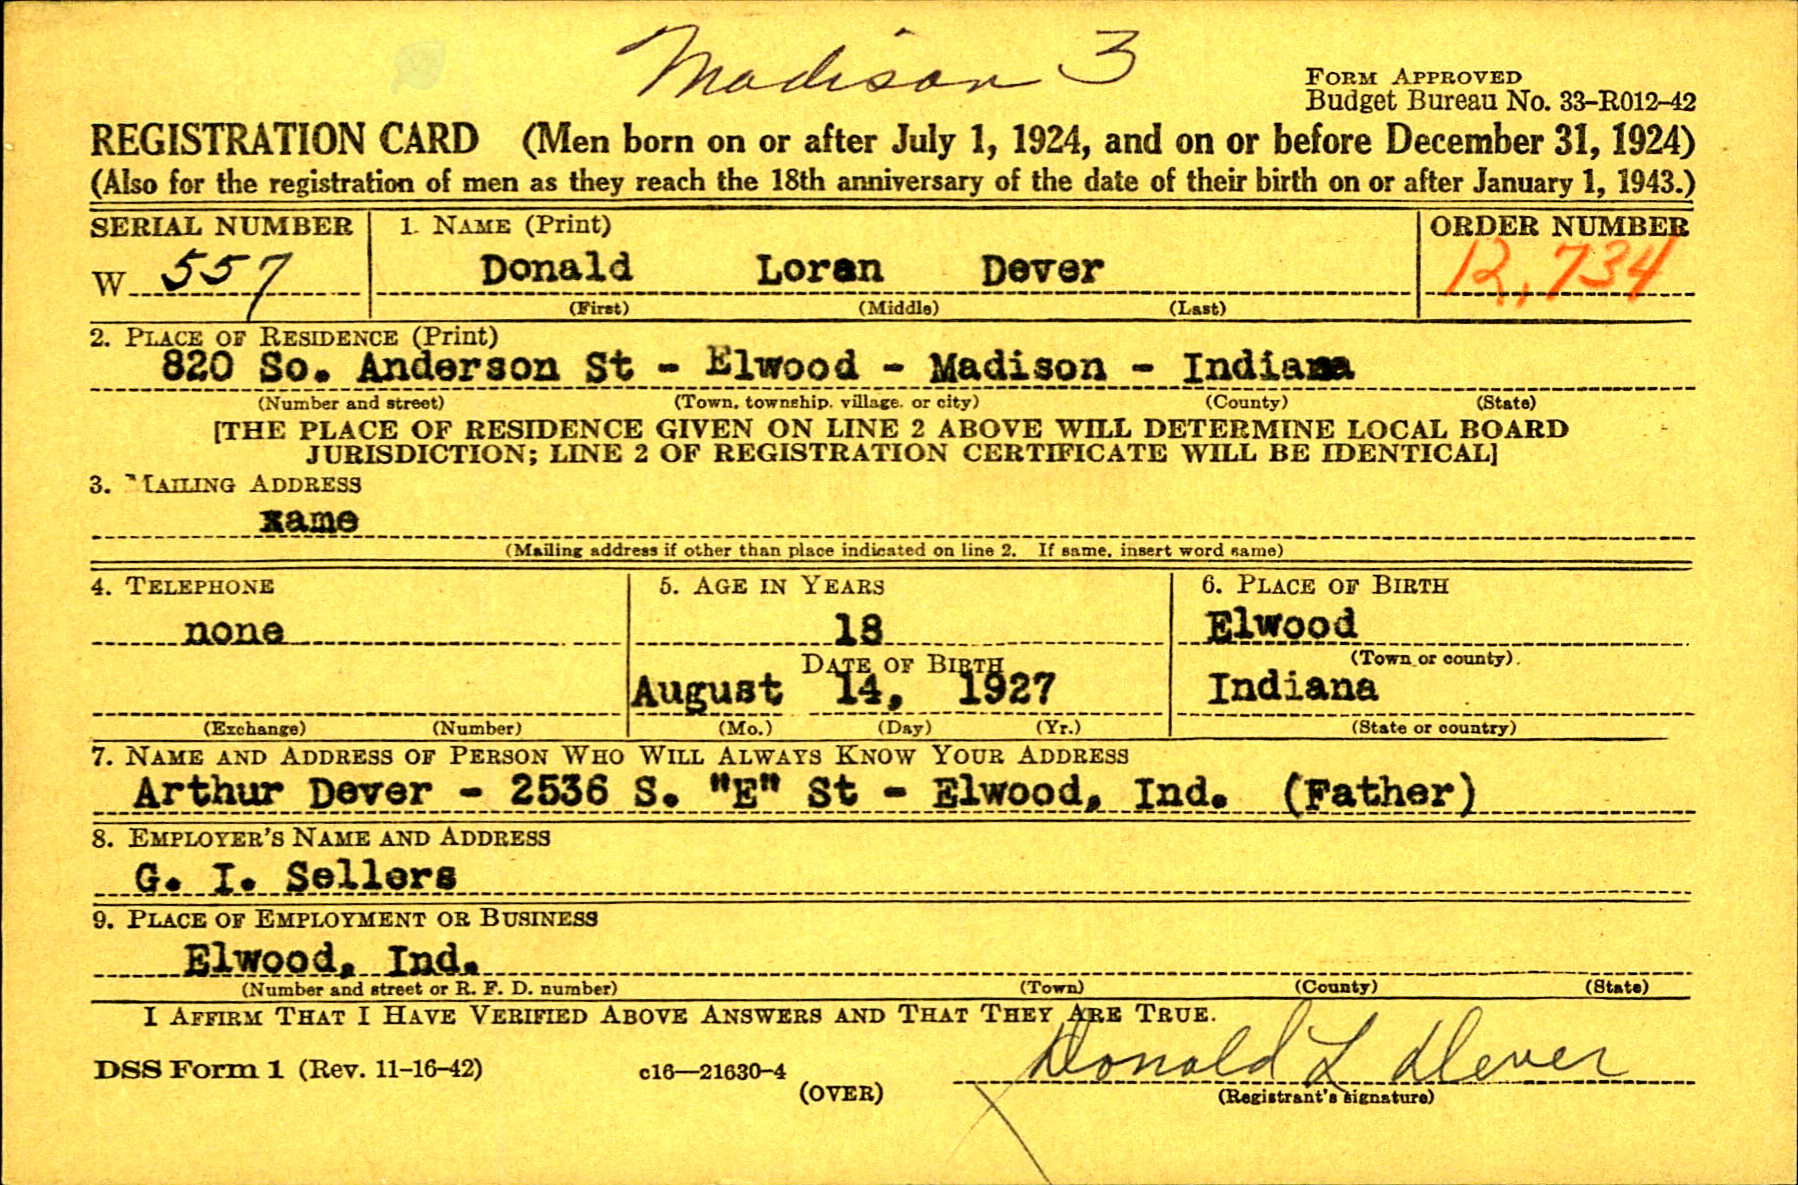 Madison 3
FORM APPROVED
Budget Bureau No. 33-R012-42
REGISTRATION CARD (Men born on or after July 1, 1924, and on or before December 31, 1924)
(Also for the registration of men as they reach the 18th anniversary of the date of their birth on or after January 1, 1943.)
SERIAL NUMBER 1. NAME (Print) ORDER NUMBER
W 557 Donald Loran Dever 12,734
(First) (Middle) (Last)
2. PLACE OF RESIDENCE (Print)
820 So. Anderson St - Elwood - Madison - Indiana
(Number and street) (Town, township, village, or city) (County) (State)
[THE PLACE OF RESIDENCE GIVEN ON LINE 2 ABOVE WILL DETERMINE LOCAL BOARD
JURISDICTION; LINE 2 OF REGISTRATION CERTIFICATE WILL BE IDENTICAL]
3. MAILING ADDRESS
same
(Mailing address if other than place indicated on line 2. If same, insert word same)
4. TELEPHONE 5. AGE IN YEARS 6. PLACE OF BIRTH
none 18 Elwood
DATE OF BIRTH (Town or county)
August 14, 1927 Indiana
(Exchange) (Number) (Mo.) (Day) (Yr.) (State or country)
7. NAME AND ADDRESS OF PERSON WHO WILL ALWAYS KNOW YOUR ADDRESS
Arthur Dever - 2536 S. "E" St - Elwood, Ind. (Father)
8. EMPLOYER'S NAME AND ADDRESS
G. I. Sellers
9. PLACE OF EMPLOYMENT OR BUSINESS
Elwood, Ind.
(Number and street or R. F. D. number) (Town) (County) (State)
I AFFIRM THAT I HAVE VERIFIED ABOVE ANSWERS AND THAT THEY ARE TRUE.
DSS Form 1 (Rev. 11-16-42) c16—21630-4 Donald L Dever
(OVER) (Registrant's signature)